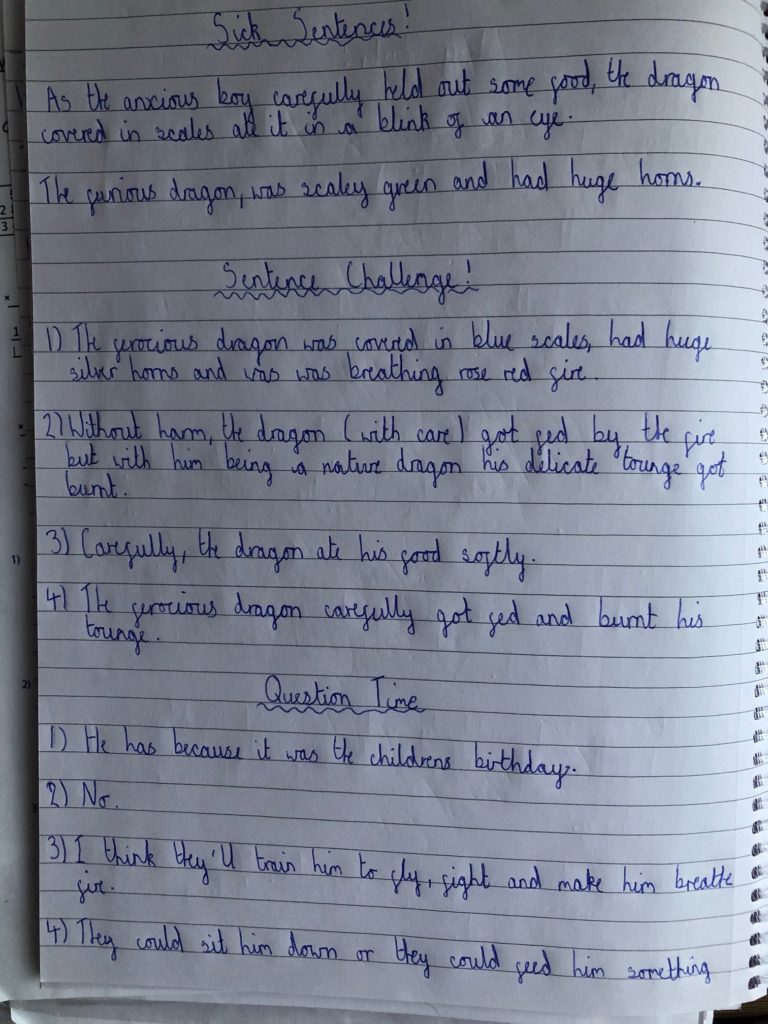 Sick Sentences!
As the anxious boy carefully held out some food, the dragon
covered in scales at it in a blink of an eye.
The furious dragon, was scaley green and had huge horns.
Sentence Challenge!
1) The ferocious dragon was covered in blue scales, had huge
silver horns and was was breathing rose red fire.
2) Without harm, the dragon (with care) got fed by the fire
but with him being a native dragon his delicate tounge got
burnt.
3) Carefully, the dragon ate his food softly.
4) The ferocious dragon carefully got fed and burnt his
tounge.
Question Time
1) He has because it was the childrens birthday.
2) No.
3) I think they'll train him to fly, fight and make him breathe
fire.
4) They could sit him down or they could feed him something
2
3
1
L
1)
2)